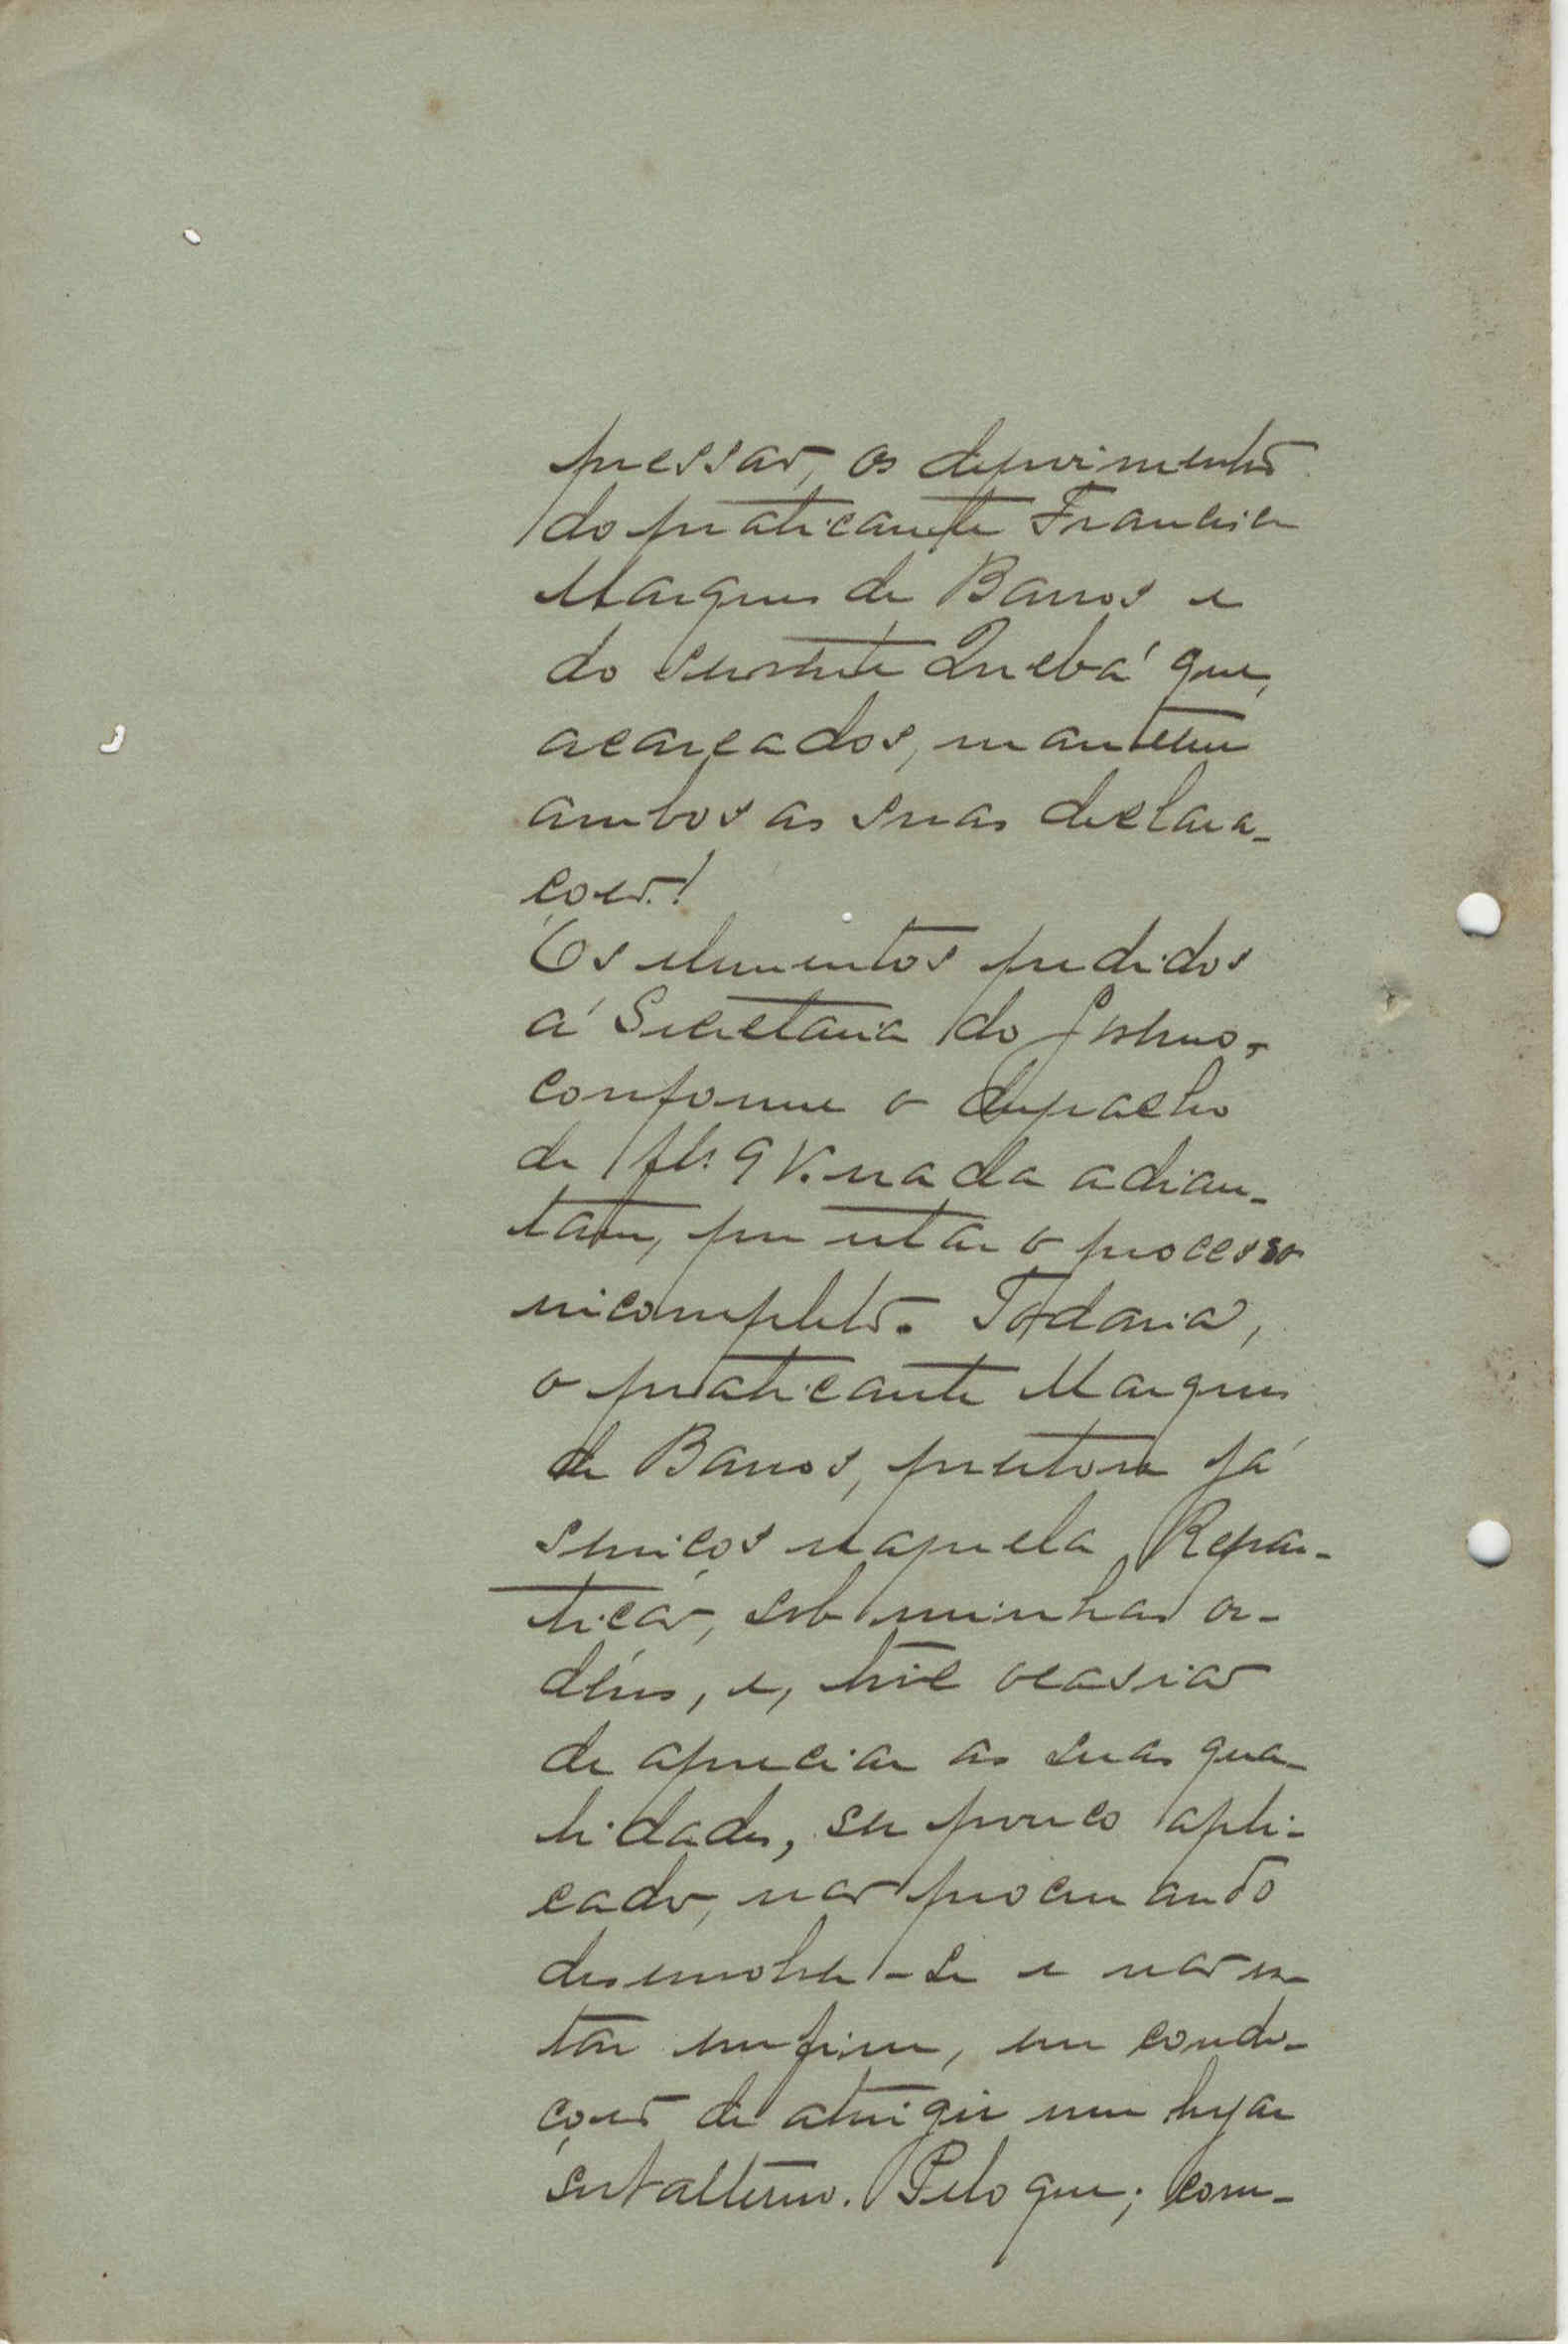 pressão, os depoimentos
do praticante Francisco
Marques de Barros e
do servente Quebá que,
acareados, mantem
ambos as suas declara-
ções!
Os elementos pedidos
á Secretaria do Governo,
conforme o despacho
de fls. 9 V. nada adian-
tam, por estar o processo
incompleto. Todavia,
o praticante Marques
de Barros, prestou já
serviços naquela Repar-
tição, sob minhas or-
dens, e, tive ocasião
de apreciar as suas qua-
lidades, ser pouco apli-
cado, não procurando
desenvolver-se e não es-
tar enfim, em condi-
ções de atingir um lugar
subalterno. Pelo que; com-